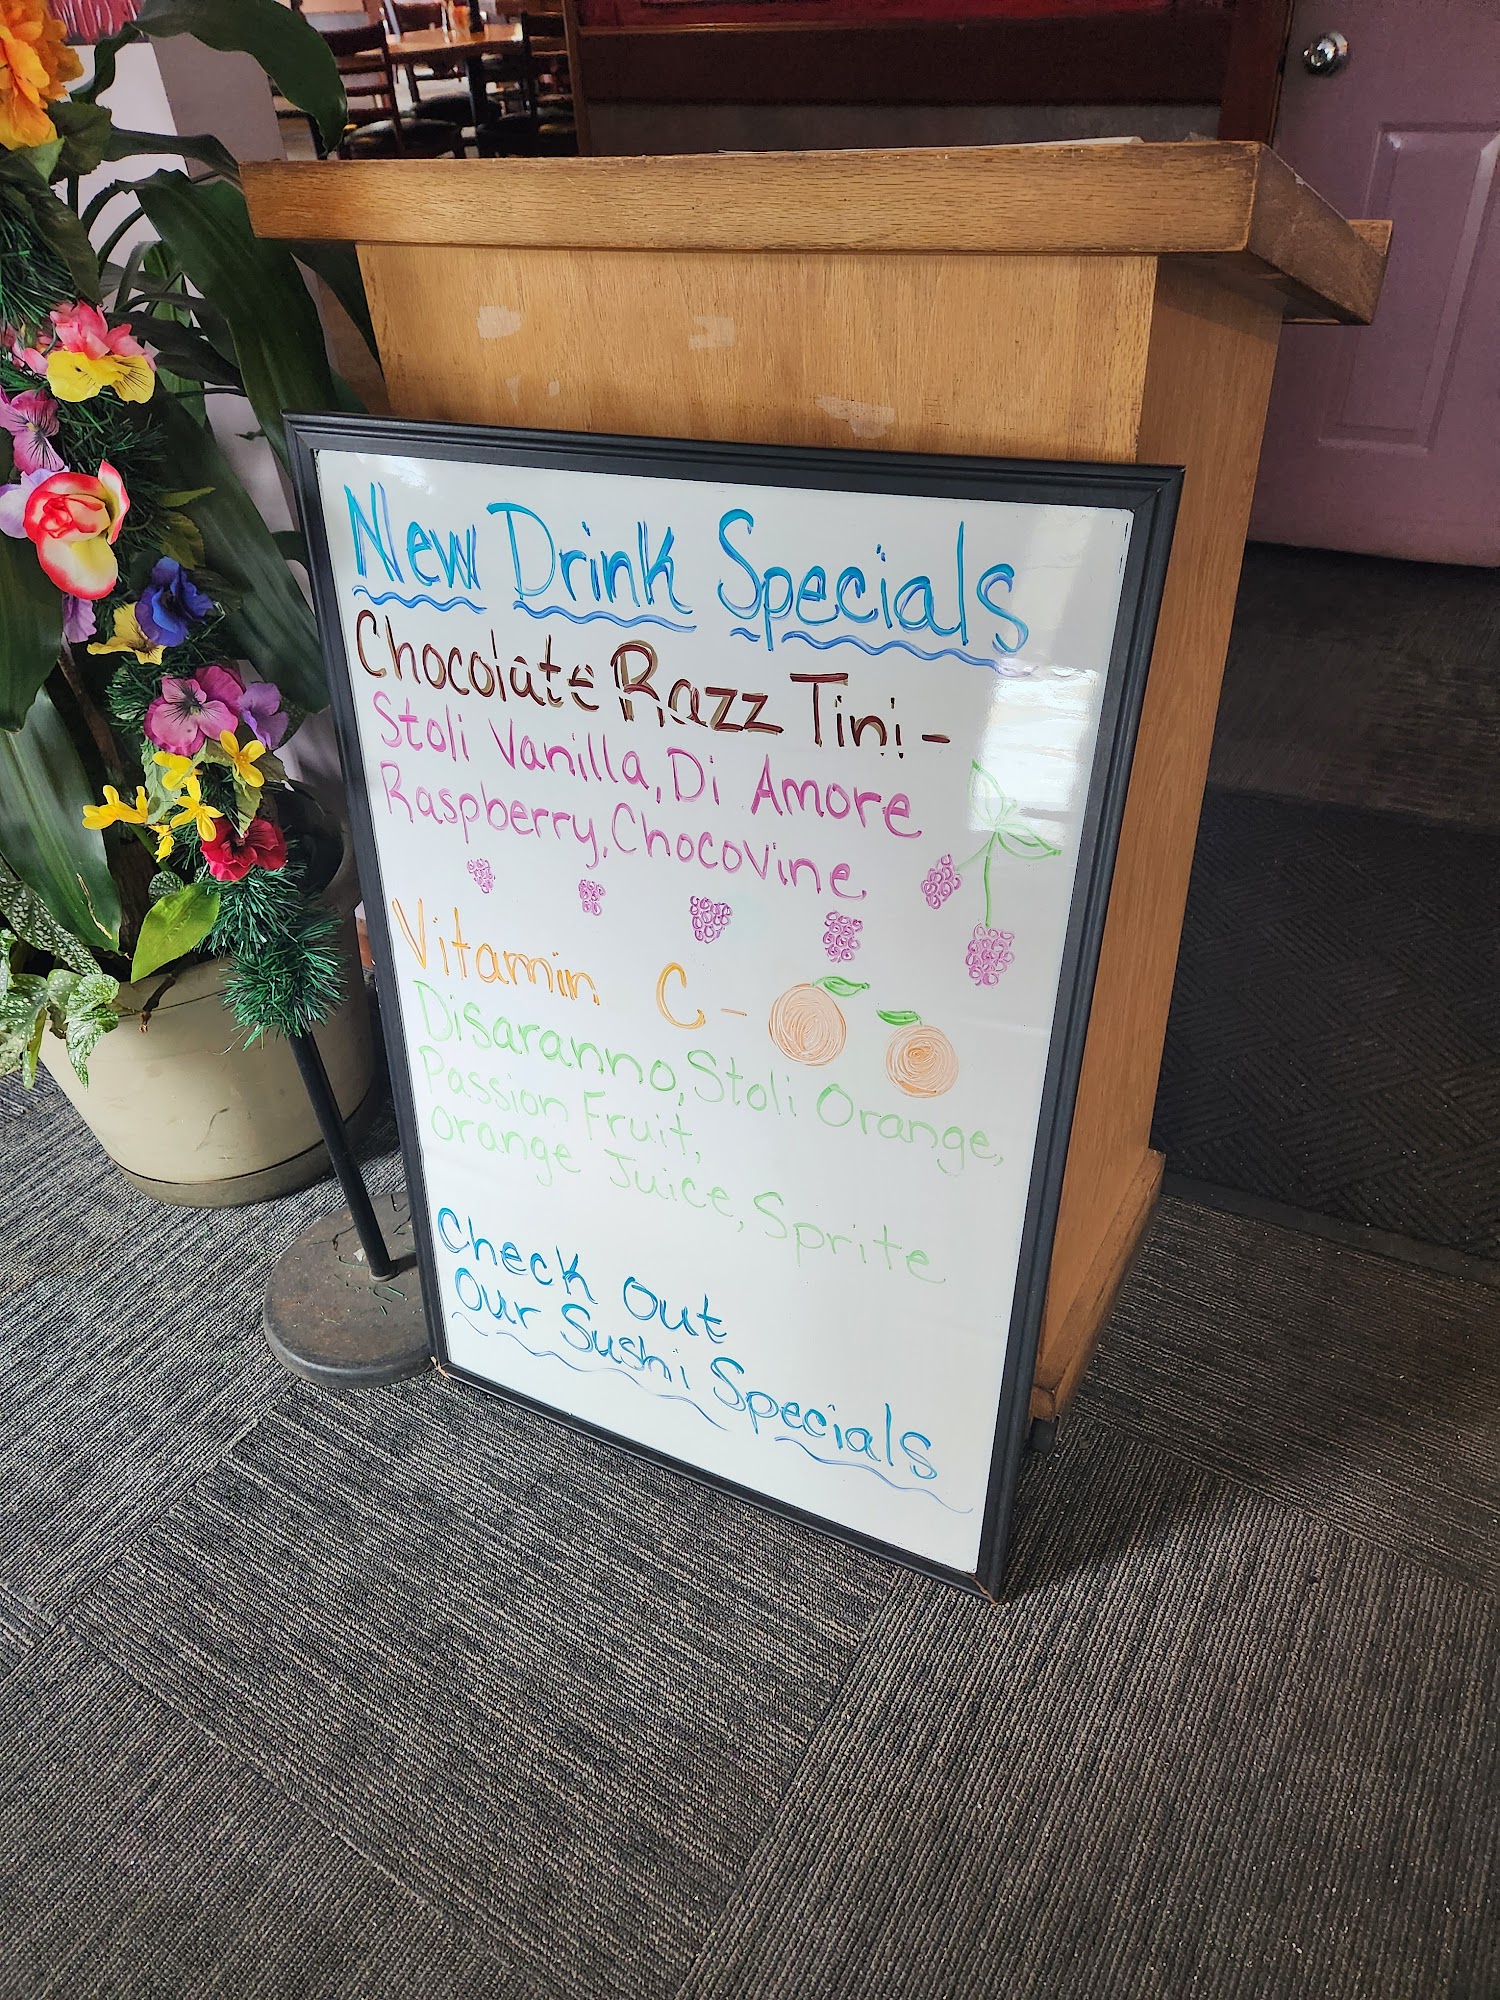 New Drink Specials
Chocolate Razz Tini -
Stoli Vanilla, Di Amore
Raspberry, Chocovine
Vitamin C -
Disaranno, Stoli Orange,
Passion Fruit,
Orange Juice, Sprite
Check Out
Our Sushi Specials